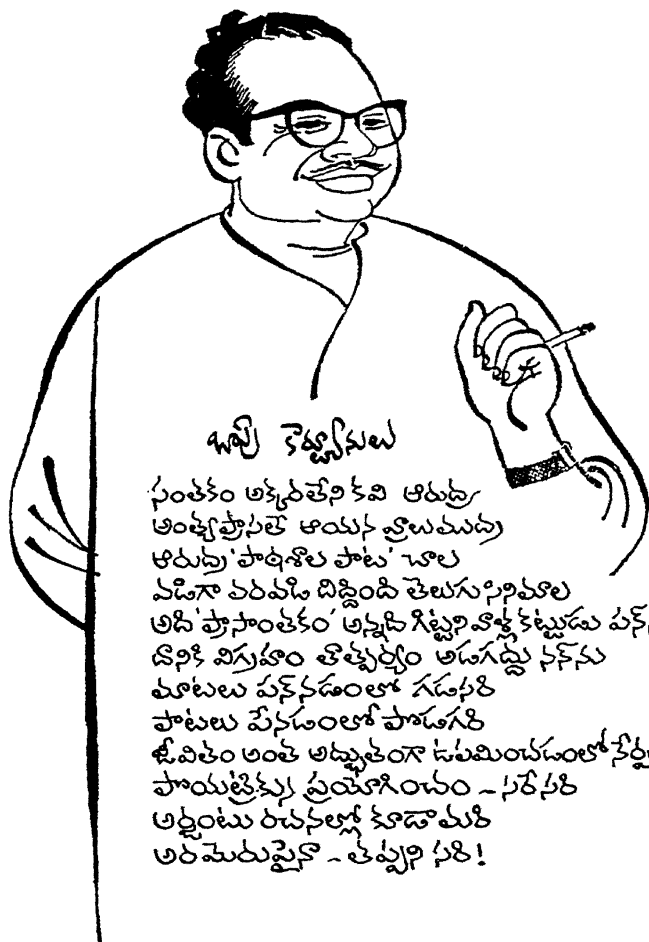 బాపు కార్ట్యూనులు
సంతకం అక్కరలేని కవి ఆరుద్ర
అంత్యప్రాసలే ఆయన వ్రాలుముద్ర
ఆరుద్ర 'పాఠశాల పాట' చాల
వడిగా వరవడి దిద్దింది తెలుగుసినిమాల
అది 'ప్రాసాంతకం' అన్నది గిట్టనివాళ్ల కట్టుడు పన్
దానికి విగ్రహం తాత్పర్యం అడగద్దు నన్ను
మాటలు పన్నడంలో గడసరి
పాటలు పేనడంలో పొడగరి
జీవితం అంత అద్భుతంగా ఉపమించడంలో నేర్ప
పొయట్రిక్కు ప్రయోగించం - సరేసరి
అర్జంటు రచనల్లో కూడా మరి
అరమెరుపైనా - తప్పని సరి!